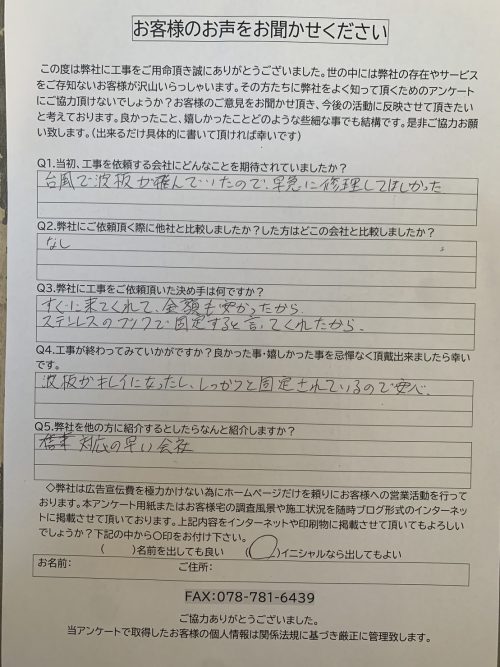 お客様のお声をお聞かせください
この度は弊社に工事をご用命頂き誠にありがとうございました。世の中には弊社の存在やサービス
をご存知ないお客様が沢山いらっしゃいます。その方たちに弊社をよく知って頂くためのアンケート
にご協力頂けないでしょうか？お客様のご意見をお聞かせ頂き、今後の活動に反映させて頂きたい
と考えております。良かったこと、嬉しかったことどのような些細な事でも結構です。是非ご協力お願
い致します。（出来るだけ具体的に書いて頂ければ幸いです）
Q1.当初、工事を依頼する会社にどんなことを期待されていましたか？
台風で波板が飛んでいたので、早急に修理してほしかった
Q2.弊社にご依頼頂く際に他社と比較しましたか？した方はどこの会社と比較しましたか？
なし
Q3.弊社に工事をご依頼頂いた決め手は何ですか？
すぐに来てくれて、金額も安かったから
ステンレスのフックで固定すると言ってくれたから。
Q4.工事が終わってみていかがですか？良かった事・嬉しかった事を忌憚なく頂戴出来ましたら幸い
です。
波板がキレイになったし、しっかりと固定されているので安心。
Q5.弊社を他の方に紹介するとしたらなんと紹介しますか？
対応の早い会社
◇弊社は広告宣伝費を極力かけない為にホームページだけを頼りにお客様への営業活動を行って
おります。本アンケート用紙またはお客様宅の調査風景や施工状況を随時ブログ形式のインターネッ
トに掲載させて頂いております。上記内容をインターネットや印刷物に掲載させて頂いてもよろしい
でしょうか？下記の中から〇印をお付け下さい。
（　　）名前を出しても良い　（〇）イニシャルなら出してもよい
お名前：　ご住所：
FAX：078-781-6439
ご協力ありがとうございました。
当アンケートで取得したお客様の個人情報は関係法規に基づき厳正に管理致します。